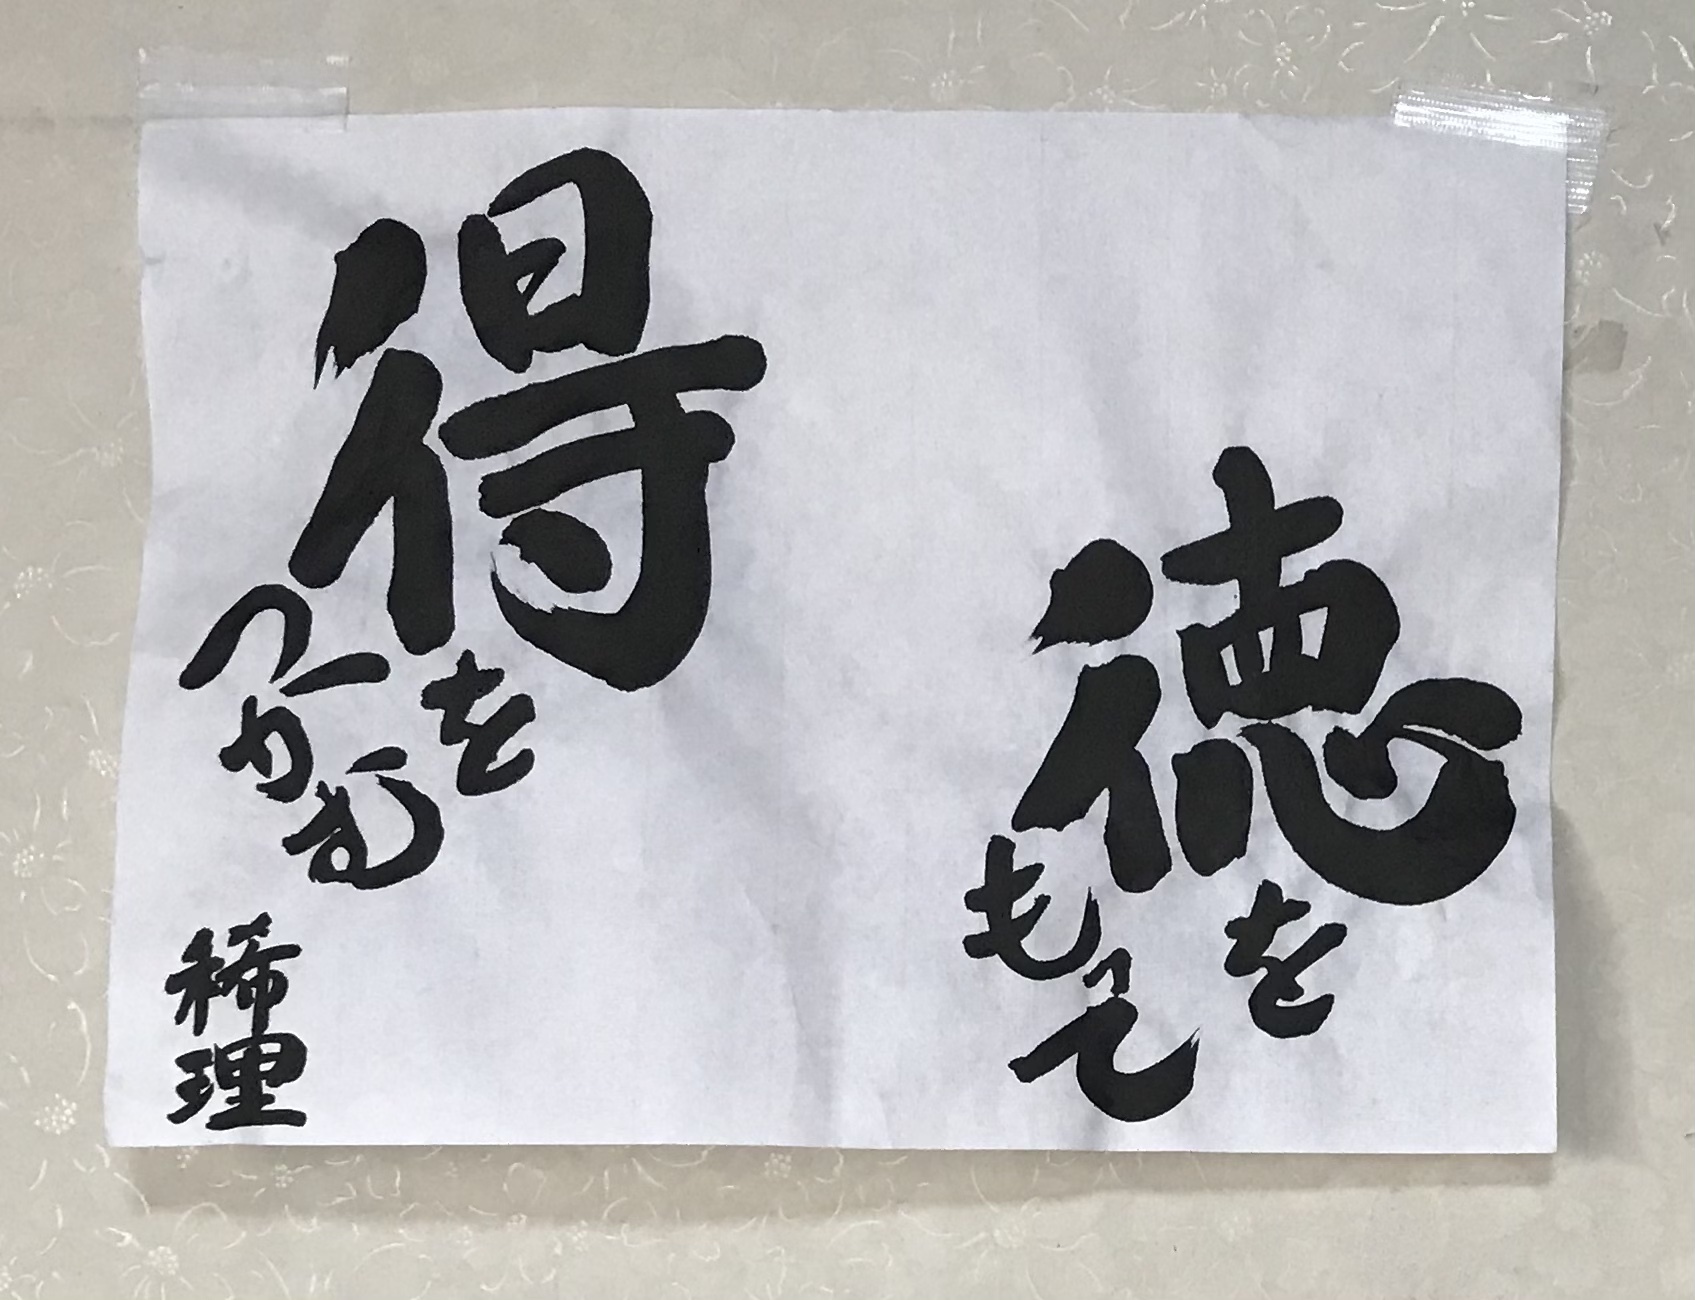 徳を
もって
得を
つかむ
稀理